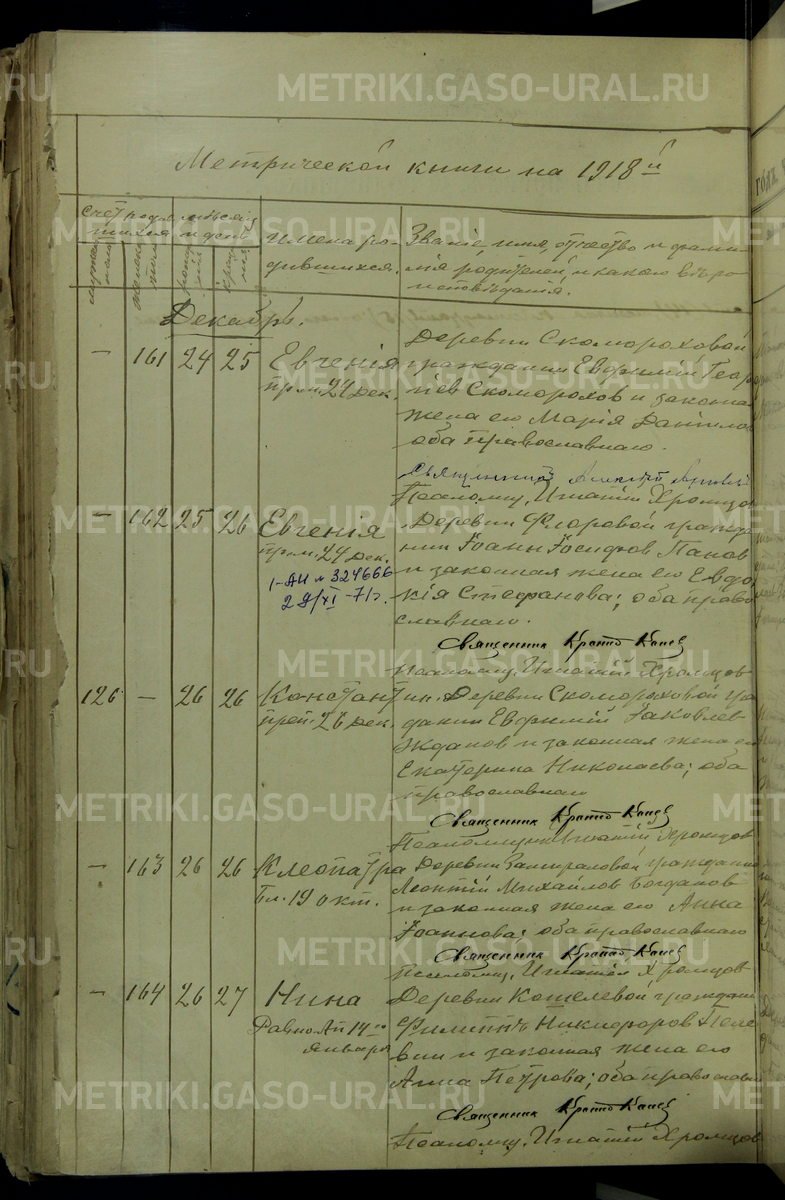 METRIKI.GASO-URAL.RU
Метрической книги на 1918 й
счет родившихся
месяц и день
мужеска пола
женска пола
рождения
крещения
имена родившихся.
Званіе, имя, отчество и фамилія родителей, и какого вѣроисповѣданія.
Декабрь.
— 161 24 25
Евгенія
прп. 24 дек.
Деревни Скомороховой
гражданин Евфимий Георгіев
Скоморохов и законная
жена его Марія Данилова
оба православнаго.
Священник Алексий
Псаломщ. Игнатій Хромцов
— 162 25 26
Евгенія
прм. 24 дек.
1-АИ № 324666
29/XI-71г.
Деревни Флоровой гражданин
Іоанн Іосифов Панов
и законная жена его Евдокія
Стефанова; оба православнаго.
Священник
Псаломщ. Игнатій Хромцов
126 — 26 26
Константин.
преп. 26 дек.
Деревни Скомороховой гражданин
Евфимій Іаковлев
Жданов и законная жена его
Екатерина Николаева; оба
православнаго
Священник
Псаломщик Игнатій Хромцов
— 163 26 26
Клеопатра
Бл. 19 окт.
Деревни гражданин
Леонтій Михайлов Богданов
и законная жена его Анна
Іоаннова; оба православнаго
Священник
Псаломщ. Игнатій Хромцов
— 164 26 27
Нина
РавноАп 14го
января
Деревни Кошелевой гражданин
Филиппъ Никифоров
и законная жена его
Анна Петрова; оба православнаго
Священник
Псаломщ. Игнатій Хромцов